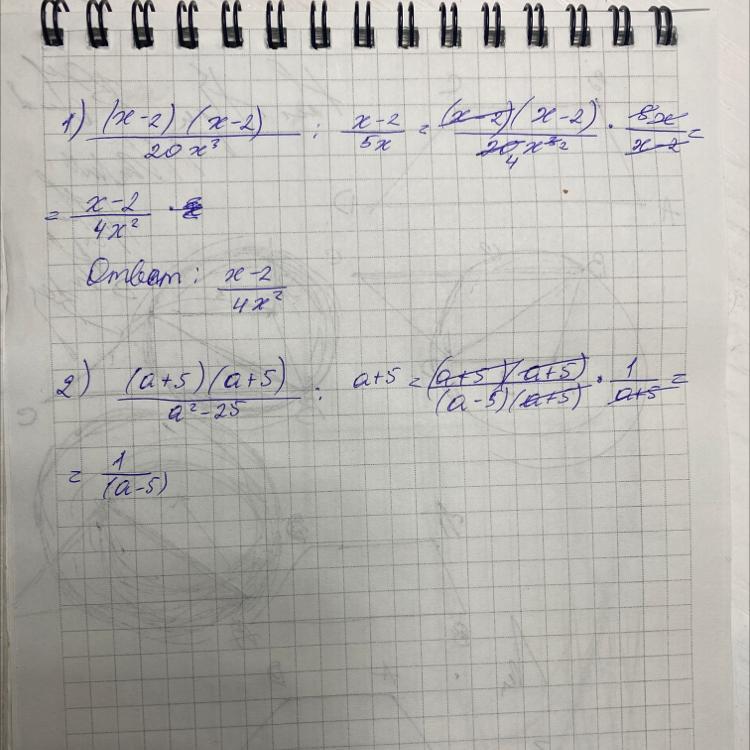 1) (x-2)(x-2)/20x³ : x-2/5x = (x-2)(x-2)/20 4 x³ 2 · 5x/x-2 =
= x-2/4x²
Ответ: x-2/4x²
2) (a+5)(a+5)/a²-25 : a+5 = (a+5)(a+5)/(a-5)(a+5) · 1/a+5 =
= 1/(a-5)